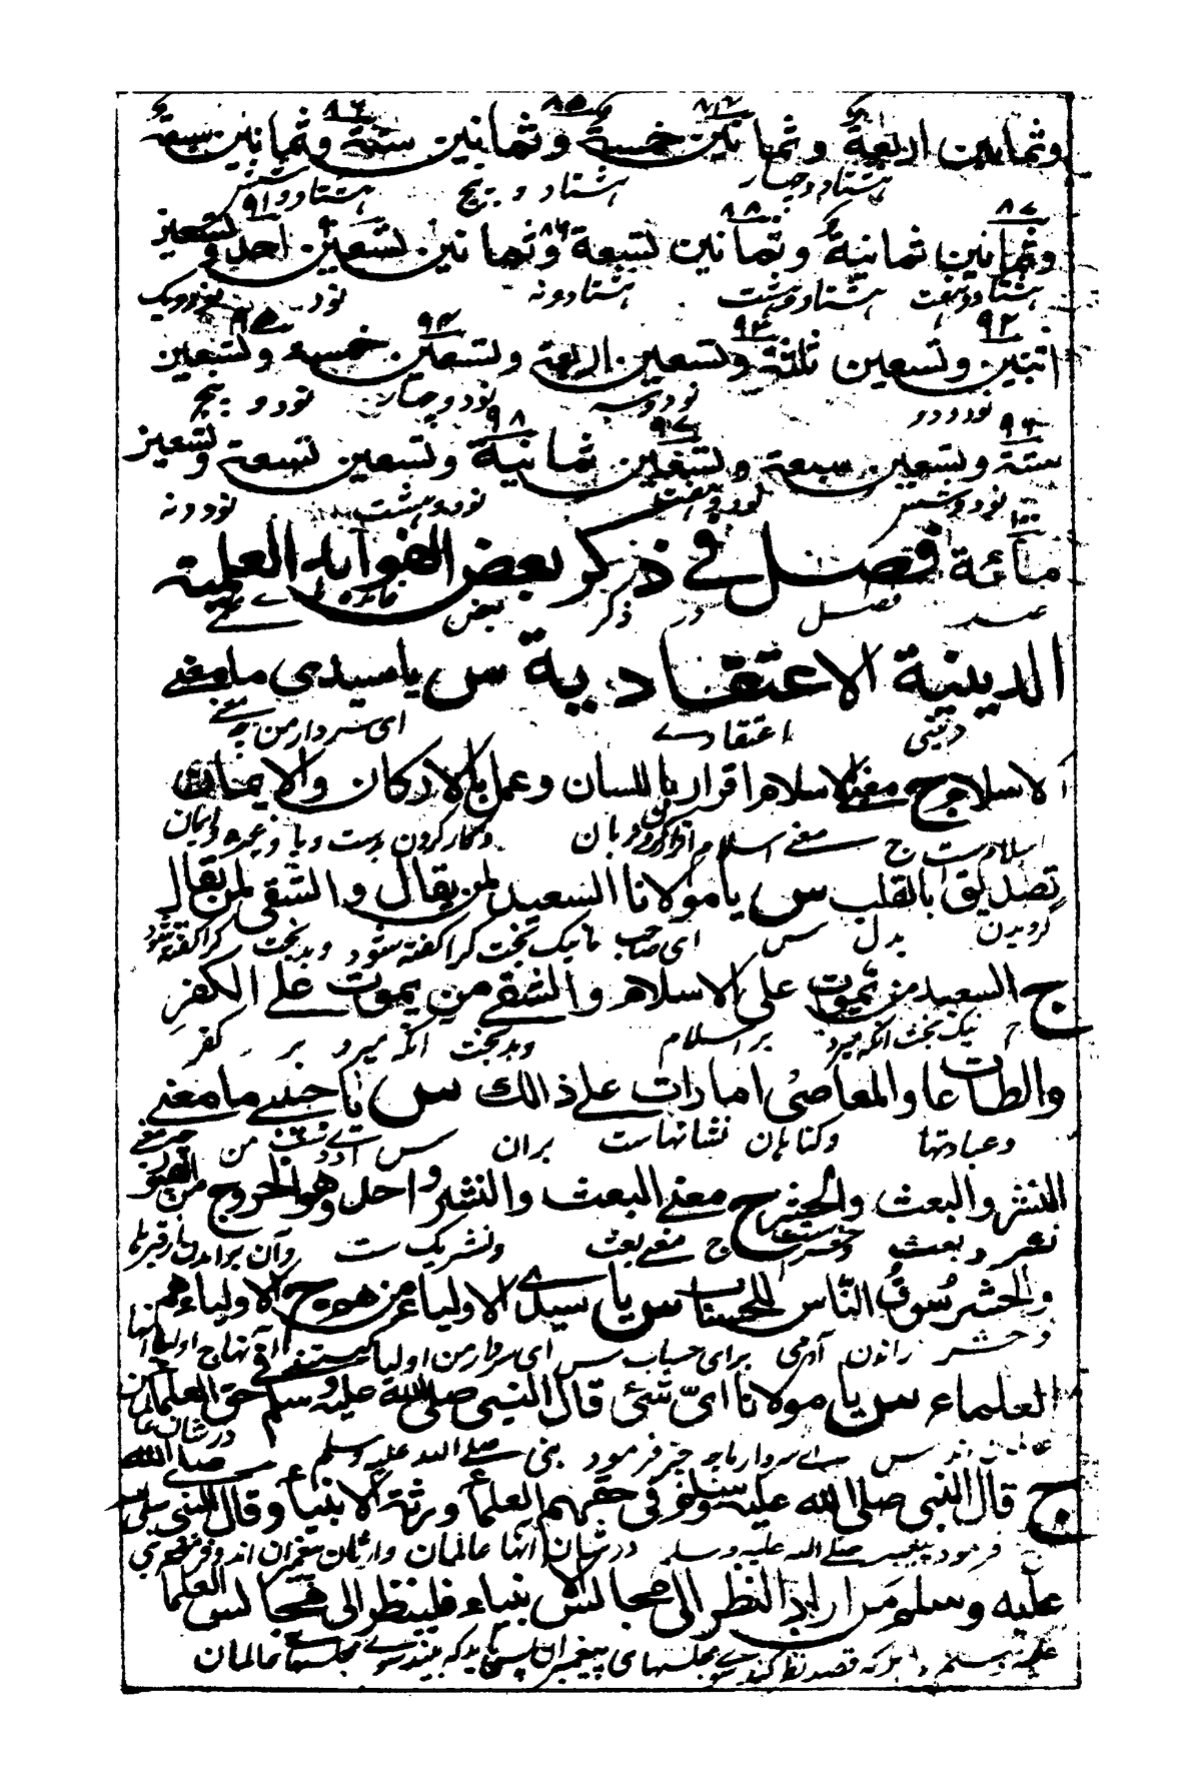 ۸۴ ۸۵ ۸۶
وثمانين اربعة وثمانين خمسة وثمانين ستة وثمانين سبعة
هشتاد وچهار هشتاد و پنج هشتاد وشش
۸۷ ۸۸ ۸۹ ۹۱
وثمانين ثمانية وثمانين تسعة وثمانين تسعين احد وتسعين
هشتاد وهفت هشتاد وهشت هشتاد ونه نود نود ويک
۹۲ ۹۳ ۹۴ ۹۵
اثنين وتسعين ثلثة وتسعين اربعة وتسعين خمسة وتسعين
نود ودو نود وسه نود وچهار نود و پنج
۹۶ ۹۷ ۹۸
ستة وتسعين سبعة وتسعين ثمانية وتسعين تسعة وتسعين
نود وشش نود وهفت نود وهشت نود ونه
۱۰۰
مائة فصل في ذكر بعض الفوايد العلمية
صد فصل در ذکر بعض فائده های علمی
الدينية الاعتقادية س ياسيدى ما معنے
دینی اعتقادے ای سردار من چه معنے
الاسلام ج معنے الاسلام اقرار باللسان وعمل بالاركان والايمان
اسلام ست ج معنے اسلام اقرار کردن بزبان وکار کردن بدست وپا وغیره وایمان
تصديق بالقلب س يا مولانا السعيد لمن يقال والشقى لمن يقال
گرویدن بدل س ای صاحب ما نیک بخت کرا گفته شود وبدبخت کرا گفته شود
ج السعيد من يموت على الاسلام والشقے من يموت علے الكفر
ج نیک بخت آنکه میرد بر اسلام وبدبخت آنکه میرد بر کفر
والطاعات والمعاصى امارات علے ذالك س يا حبيبے ما معنے
وعبادتها وگناهان نشانهاست بران س اے دوست من چه معنے
النشر والبعث والحشر ج معنے البعث والنشر واحد وهو الخروج من القبور
نشر وبعث وحشر ست ج معنے بعث ونشر یک ست وآن برامدن از قبرها
والحشر سوق الناس للحساب س يا سيدے الاولياء من هم ج الاولياء هم
وحشر راندن آدمی برای حساب س ای سردار من اولیا کیستند ج اولیا آنها
العلماء س يا مولانا اىّ شئ قال النبى صلى الله عليه وسلم فى حق العلماء
عالمان اند س اے سردار ما چه چیز فرمود نبی صلے الله علیه وسلم در شان
ج قال النبى صلى الله عليه وسلم فى حقهم العلماء ورثة الانبياء وقال النبى صلى الله
فرمود پیغمبر صلے الله علیه وسلم در شان آنها عالمان وارثان پیغمبران اند وفرمود نبی
عليه وسلم من اراد النظر الى مجالس الانبياء فلينظر الى مجالس العلماء
علیه وسلم هر که قصد نظر کند سوے مجلسهای پیغمبران پس باید که بیند سوے مجلسهاے عالمان